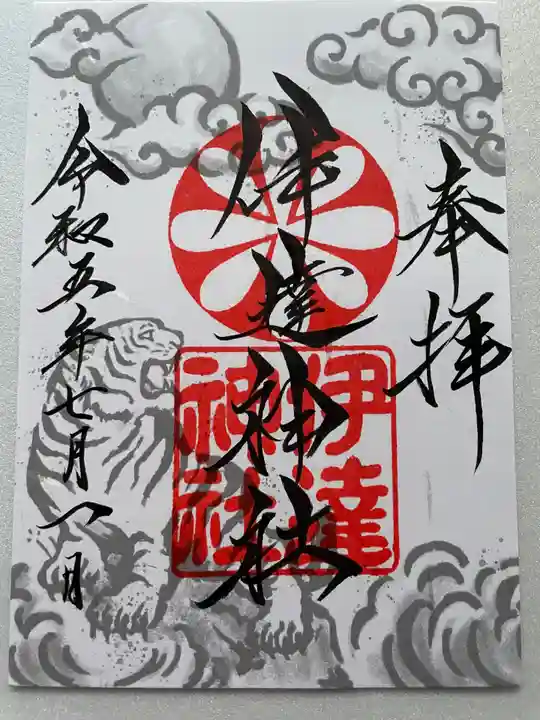 奉拝
伊達神社
伊達
神社
令和五年七月一日